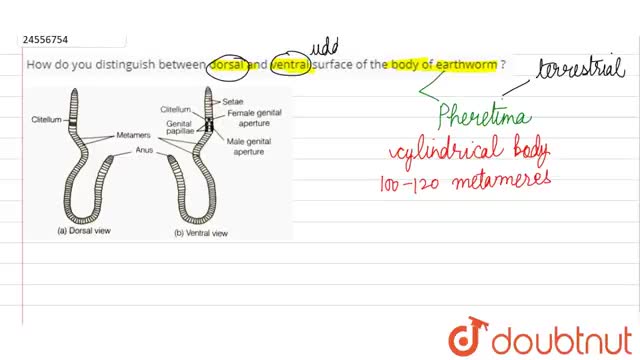 24556754
udd
How do you distinguish between dorsal and ventral surface of the body of earthworm ?
terrestrial
Pheretima
cylindrical body
100-120 metameres
Clitellum
Metamers
Anus
(a) Dorsal view
Setae
Clitellum
Female genital
aperture
Genital
papillae
Male genital
aperture
(b) Ventral view
doubtnut